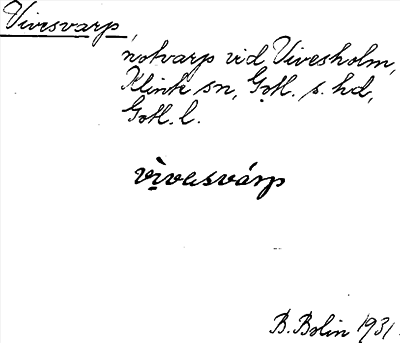 Vivesvarp,
notvarp vid Vivesholm,
Klinte sn, Gotl. s. hd,
Gotl. l.
vi̬vasvárp
B. Bolin 1931.